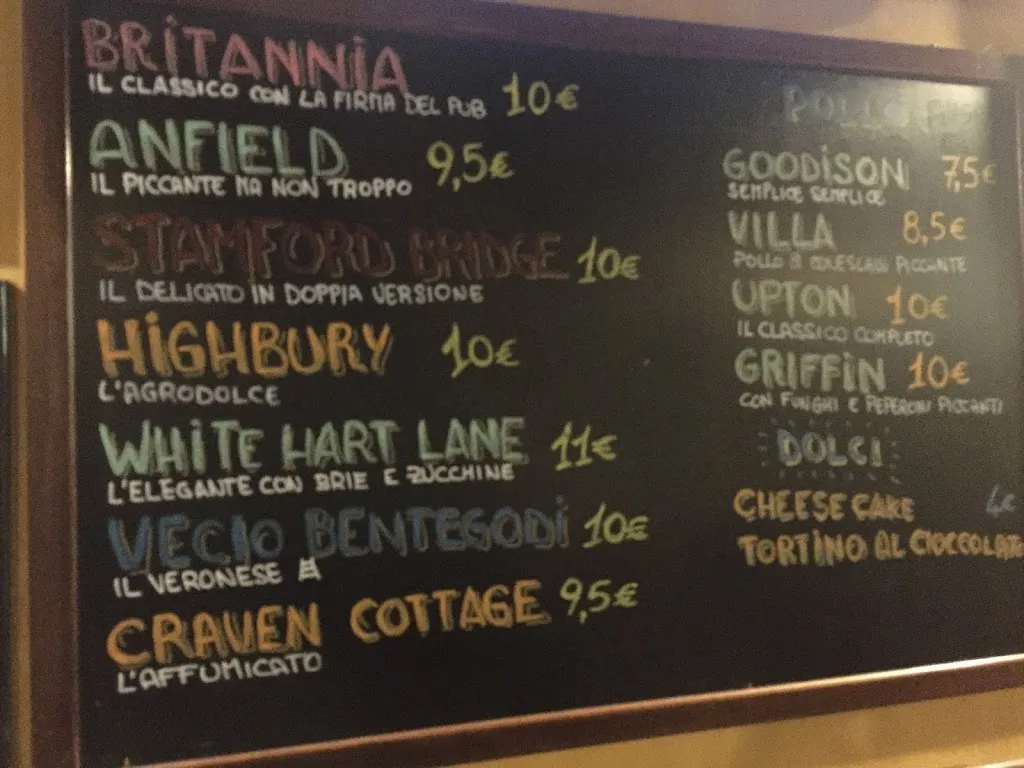 BRITANNIA 10€
IL CLASSICO CON LA FIRMA DEL PUB
ANFIELD 9,5€
IL PICCANTE MA NON TROPPO
STAMFORD BRIDGE 10€
IL DELICATO IN DOPPIA VERSIONE
HIGHBURY 10€
L'AGRODOLCE
WHITE HART LANE 11€
L'ELEGANTE CON BRIE E ZUCCHINE
VECIO BENTEGODI 10€
IL VERONESE
CRAVEN COTTAGE 9,5€
L'AFFUMICATO
GOODISON 7,5€
SEMPLICE SEMPLICE
VILLA 8,5€
POLLO PICCANTE
UPTON 10€
IL CLASSICO COMPLETO
GRIFFIN 10€
CON FUNGHI E PEPERONI PICCANTI
DOLCI
CHEESE CAKE
TORTINO AL CIOCCOLATO